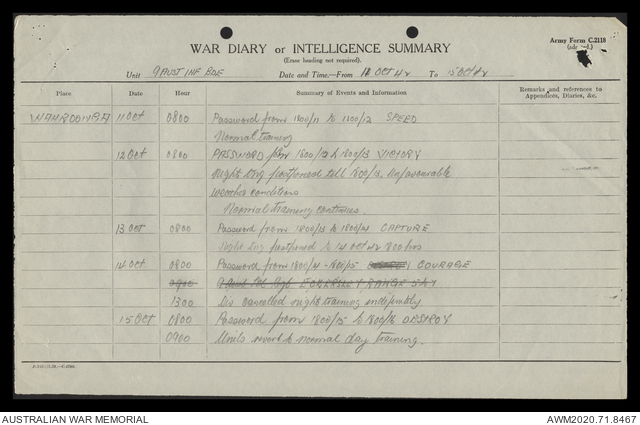 WAR DIARY or INTELLIGENCE SUMMARY
Army Form C.2118
(Erase heading not required).
Unit 9 AUST INF BDE Date and Time.—From 11 OCT 42 To 15 Oct 42
Place Date Hour Summary of Events and Information Remarks and references to
Appendices, Diaries, &c.
11 Oct 0800 Password from 1800/11 to 1800/12 SPEED
Normal training
12 Oct 0800 PASSWORD from 1800/12 to 1800/13 VICTORY
Night trng postponed till 1800/13. Unfavourable
weather conditions
Normal training continues.
13 Oct 0800 Password from 1800/13 to 1800/14 CAPTURE
Night trng postponed to 14 Oct 42 1800 hrs
14 Oct 0800 Password from 1800/14 - 1800/15 COURAGE
0900 RANGE
1300 Div cancelled night training indefinitely
15 Oct 0800 Password from 1800/15 to 1800/16 DESTROY
0900 Units revert to normal day training.
AUSTRALIAN WAR MEMORIAL
AWM2020.71.8467